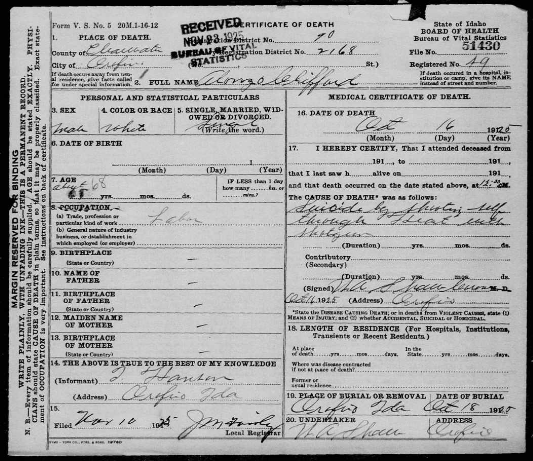 Form V. S. No. 5 20M.1-16-12
CERTIFICATE OF DEATH
State of Idaho
BOARD OF HEALTH
Bureau of Vital Statistics
RECEIVED
NOV 23 1925
BUREAU OF VITAL
STATISTICS
1. PLACE OF DEATH.
County of Clearwater
City of Orofino
District No. 70
Registration District No. 2168
St.)
File No. 51430
Registered No. 49
If death occurs away from usual residence, give facts called for under special information.
If death occurred in a hospital, institution or camp, give its NAME instead of street and number.
2. FULL NAME Alonzo Clifford
PERSONAL AND STATISTICAL PARTICULARS
3. SEX
male
4. COLOR OR RACE
White
5. SINGLE, MARRIED, WIDOWED OR DIVORCED.
Single
(Write the word.)
6. DATE OF BIRTH
(Month) (Day) (Year)
7. AGE
about 68
yrs. mos. ds.
IF LESS than 1 day
how many hrs. or
mins.?
8. OCCUPATION
(a) Trade, profession or
particular kind of work
Labor
(b) General nature of industry
business, or establishment in
which employed (or employer)
9. BIRTHPLACE
(State or Country)
10. NAME OF
FATHER
11. BIRTHPLACE
OF FATHER
(State or Country)
12. MAIDEN NAME
OF MOTHER
13. BIRTHPLACE
OF MOTHER
(State or Country)
14. THE ABOVE IS TRUE TO THE BEST OF MY KNOWLEDGE
(Informant) Hansen
(Address) Orofino Ida
15.
Filed Nov 10 1925
Local Registrar
MEDICAL CERTIFICATE OF DEATH.
16. DATE OF DEATH
Oct 16 1925
(Month) (Day) (Year)
17. I HEREBY CERTIFY, That I attended deceased from
191 , to 191
that I last saw h alive on 191
and that death occurred on the date stated above, at M.
The CAUSE OF DEATH* was as follows:
Suicide by shooting self
through heart with
shotgun
(Duration) yrs. mos. ds.
Contributory
(Secondary)
(Duration) yrs. mos. ds.
(Signed) M. D.
Oct 16, 1925 (Address) Orofino
*State the DISEASE CAUSING DEATH; or in deaths from VIOLENT CAUSES, state (1) MEANS OF INJURY; and (2) whether ACCIDENTAL, SUICIDAL or HOMICIDAL.
18. LENGTH OF RESIDENCE (For Hospitals, Institutions,
Transients or Recent Residents.)
At place
of death yrs. mos. days.
In the
State yrs. mos. days
Where was disease contracted
if not at place of death?
Former or
usual residence
19. PLACE OF BURIAL OR REMOVAL
Orofino Ida
DATE OF BURIAL
Oct 18 1925
20. UNDERTAKER
ADDRESS
Orofino
MARGIN RESERVED FOR BINDING
WRITE PLAINLY, WITH UNFADING INK—THIS IS A PERMANENT RECORD.
N. B.—Every item of information should be carefully supplied. AGE should be stated EXACTLY. PHYSICIANS should state CAUSE OF DEATH in plain terms so that it may be properly classified. Exact statement of OCCUPATION is very important. See instructions on back of certificate.